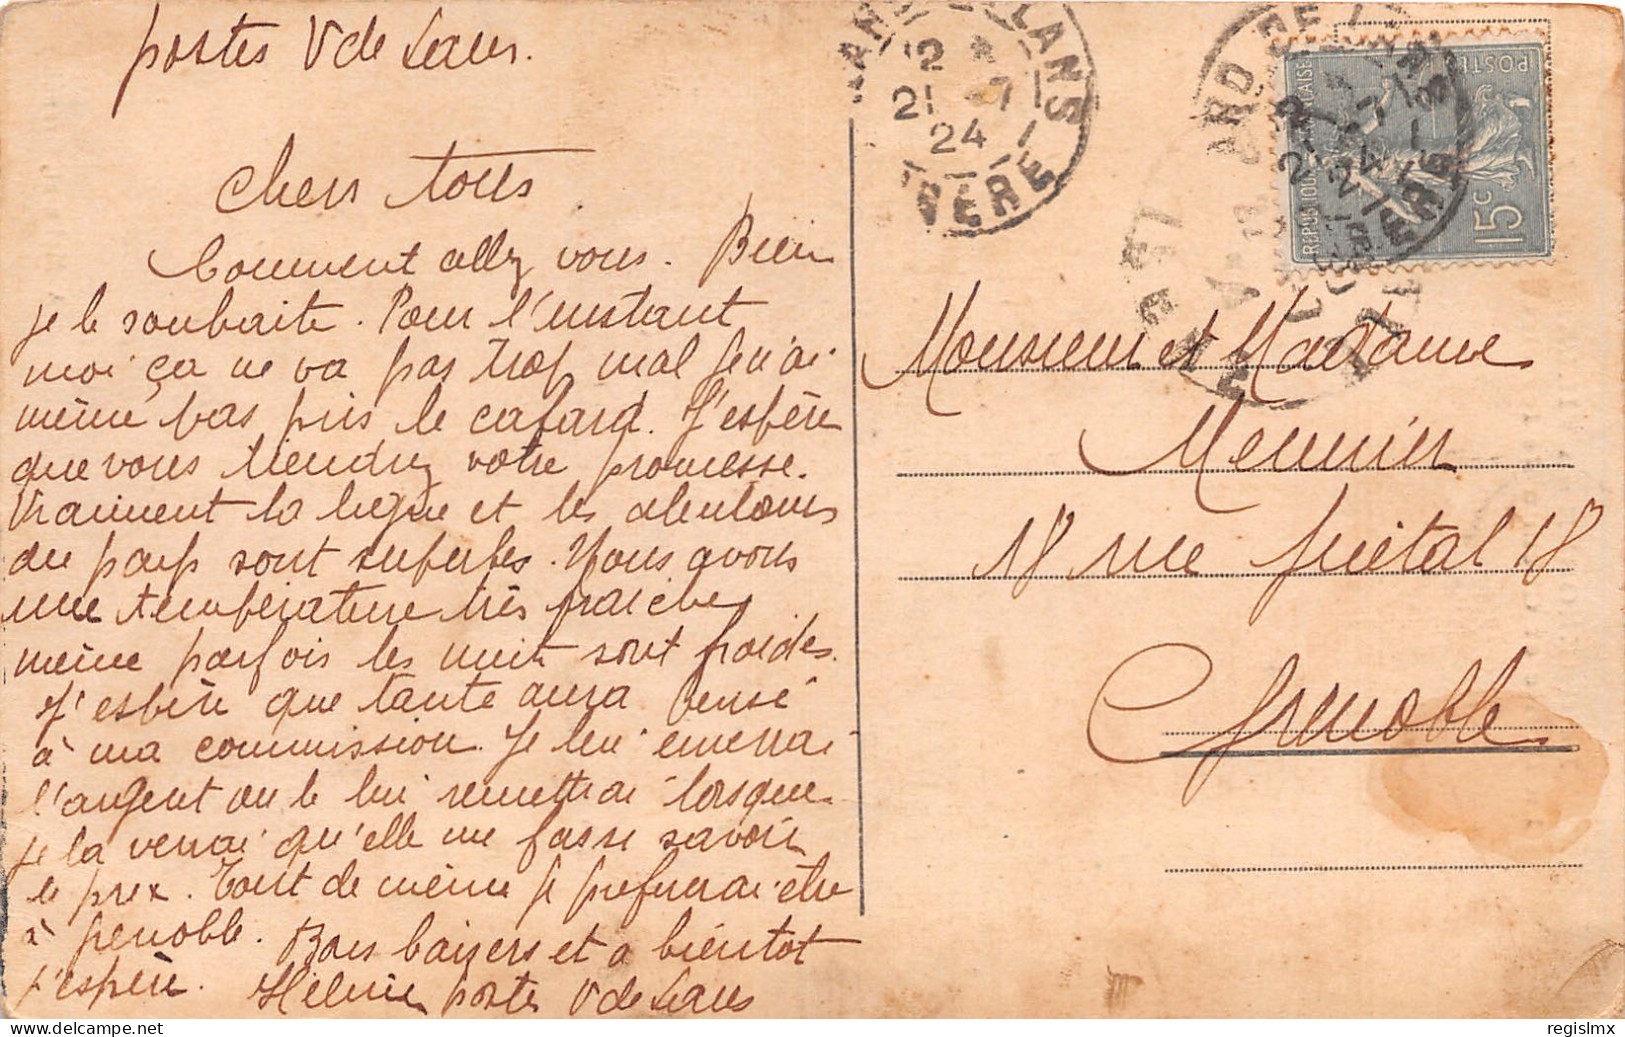 postes V de Lans.
Chers tous
Comment allez vous. Bien
je le souhaite. Pour l'instant
moi ça ne va pas trop mal je n'ai
même pas pris le cafard. J'espère
que vous tiendrez votre promesse.
Vraiment la ligne et les alentours
du pays sont superbes. Nous avons
une température très fraiche,
même parfois les nuits sont froides.
J'espère que tante aura pensé
à ma commission. Je lui enverrai
l'argent ou le lui remettrai lorsque
je la verrai qu'elle me fasse savoir
le prix. Tout de même je prefererai être
à Grenoble. Bons baisers et a bientot
j'espère. Hélène postes V de Lans
12 *
21 -7
24
ISERE
POSTES
REPUBLIQUE FRANÇAISE
15c
Monsieur et Madame
Meunier
18 rue 18
Grenoble
regislmx